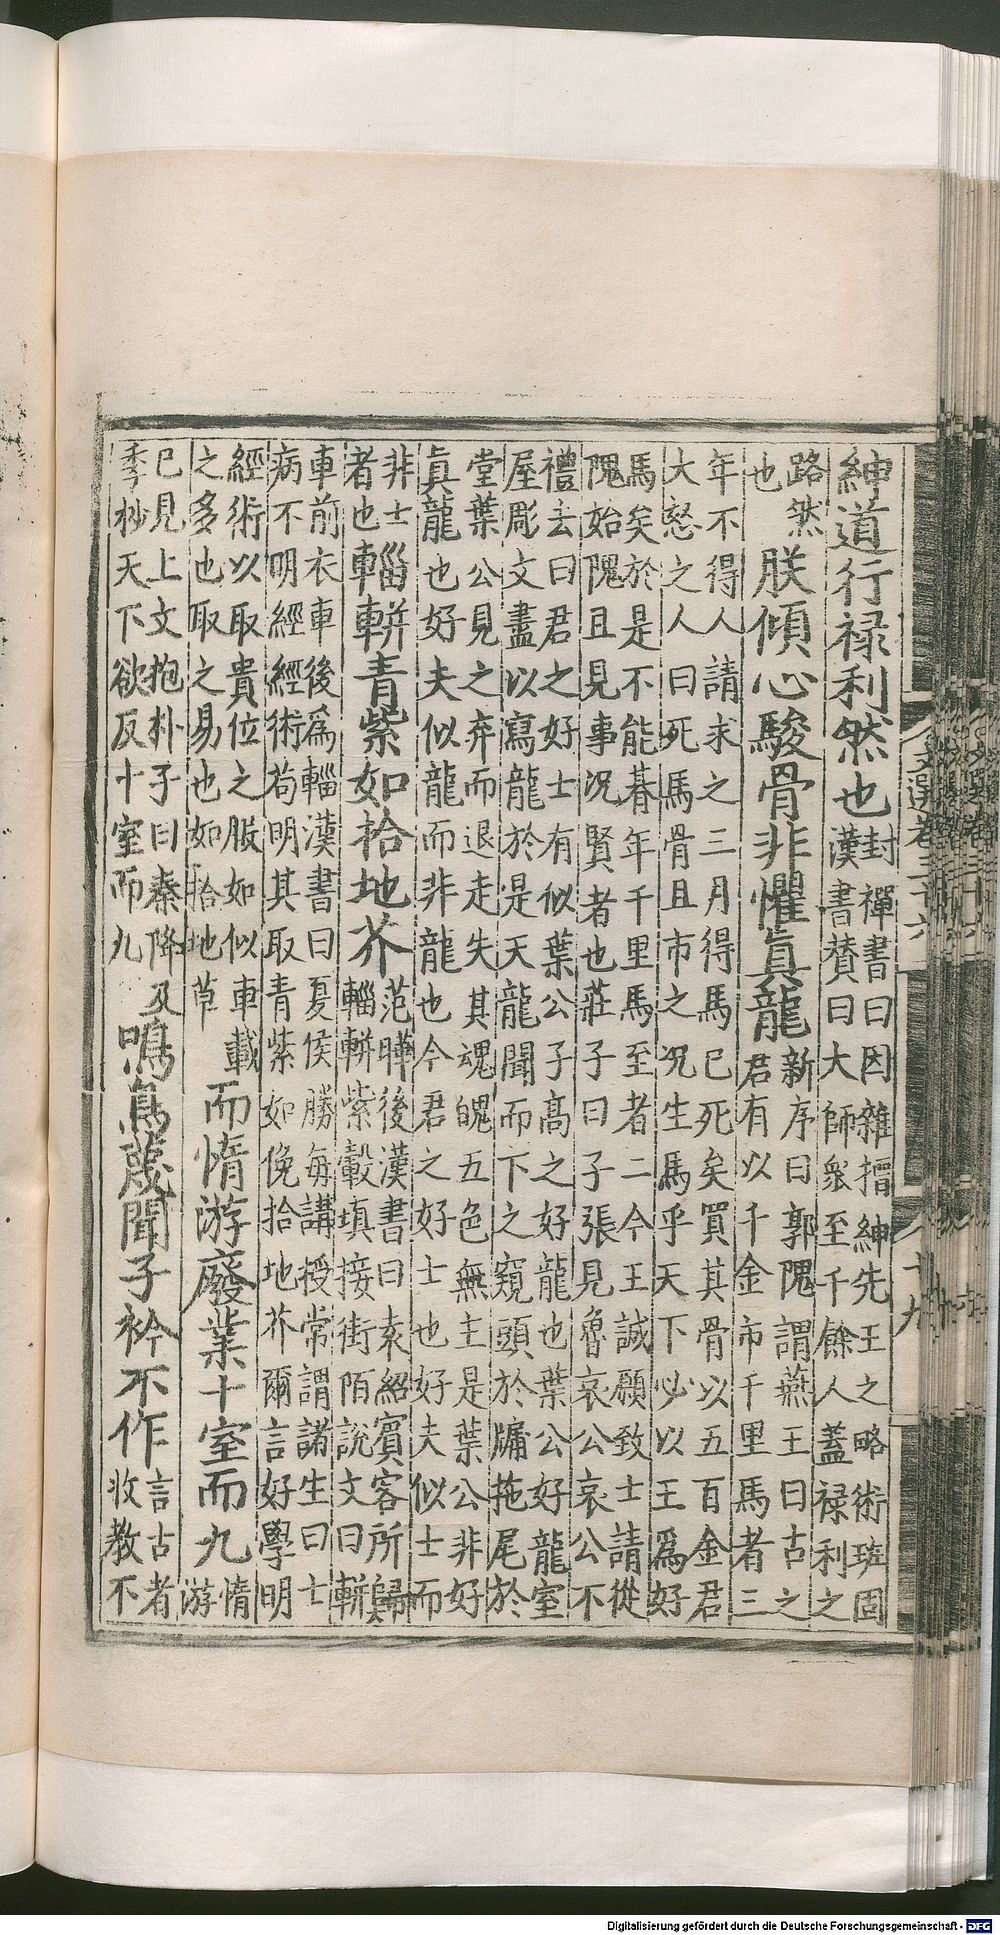 紳道行祿利然也封禪書曰因雜搢紳先王之略術班固
漢書賛曰大師衆至千餘人蓋祿利之
路然
也朕傾心駿骨非懼眞龍新序曰郭隗謂燕王曰古之
君有以千金市千里馬者三
年不得人請求之三月得馬已死矣買其骨以五百金君
大怒之人曰死馬骨且市之況生馬乎天下必以王爲好
馬矣於是不能朞年千里馬至者二今王誠願致士請從
隗始隗且見事況賢者也莊子曰子張見魯哀公哀公不
禮去曰君之好士有似葉公子高之好龍也葉公好龍室
屋彫文盡以寫龍於是天龍聞而下之窺頭於牖拖尾於
堂葉公見之弃而退走失其魂魄五色無主是葉公非好
眞龍也好夫似龍而非龍也今君之好士也好夫似士而
非士
者也輜軿青紫如拾地芥范曄後漢書曰袁紹賓客所歸
輜軿紫轂填接街陌說文曰軿
車前衣車後爲輜漢書曰夏侯勝每講授常謂諸生曰士
病不明經經術苟明其取青紫如俛拾地芥爾言好學明
經術以取貴位之服如似車載
之多也取之易也如拾地草而惰游廢業十室而九惰
游
已見上文抱朴子曰秦降及
季杪天下欲反十室而九鳴鳥蔑聞子衿不作言古者
收教不
文選卷三十六
十九
Digitalisierung gefördert durch die Deutsche Forschungsgemeinschaft - DFG